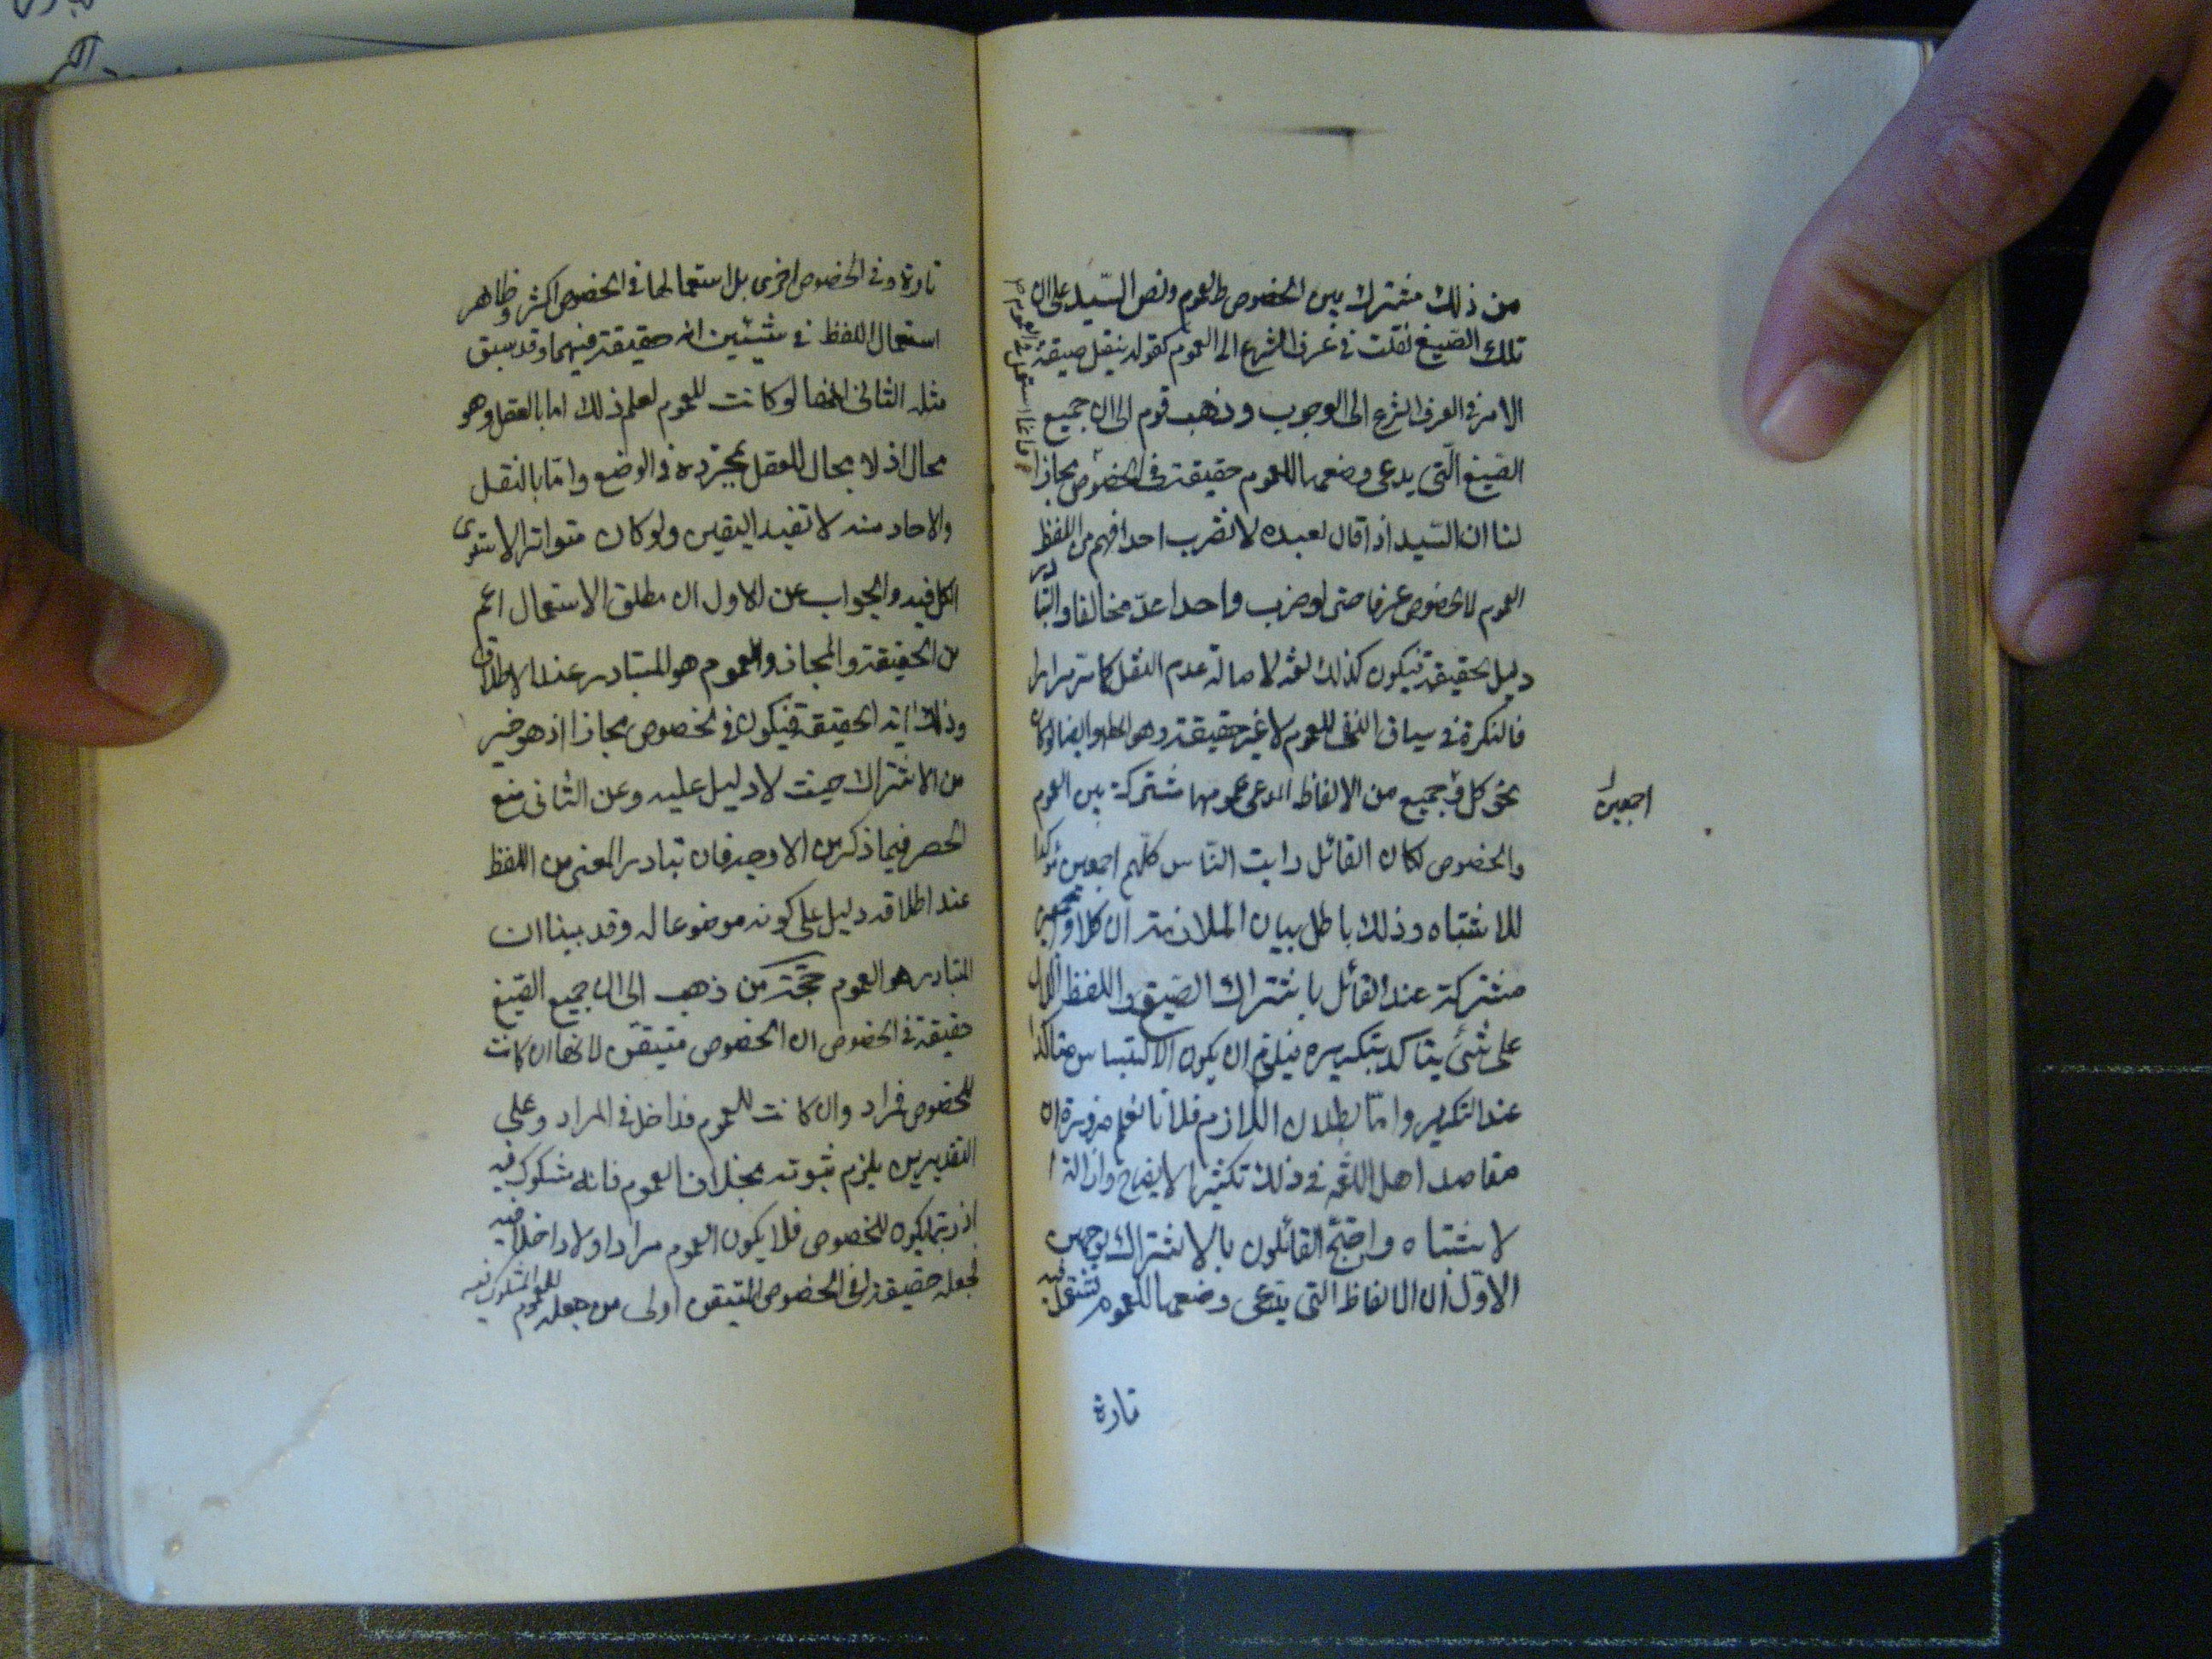 من ذلك مشترك بين الخصوص والعموم ونص السيد على ان
تلك الصيغ نقلت في عرف الشرع الى العموم كقوله بنقل صيغة
الامر في العرف الشرع الى الوجوب وذهب قوم الى ان جميع
الصيغ التي يدعى وضعها للعموم حقيقة في الخصوص مجازا
لنا ان السيد اذا قال لعبده لا تضرب احدا فهم من اللفظ
العموم لا الخصوص عرفا حتى لو ضرب واحدا عد مخالفا والتبادر
دليل الحقيقة فيكون كذلك لغة لاصالة عدم النقل كما مر مرارا
فالنكرة في سياق النفي للعموم لا غير حقيقة وهو المط وايضا لو كان
نحو كل وجميع من الالفاظ المدعى عمومها مشتركة بين العموم
والخصوص لكان القائل رايت الناس كلهم اجمعين مؤكدا
اجمعين
للاشتباه وذلك باطل بيان الملازمة ان كلا واجمعين
مشتركة عند القائل باشتراك الصيغ واللفظ الدال
على شئ يتاكد بتكريره فيلزم ان يكون الالتباس متاكدا
عند التكرير واما بطلان اللازم فلانا نعلم ضرورة ان
مقاصد اهل اللغة في ذلك تكثير الايضاح وازالة
لاشتباه واحتج القائلون بالاشتراك بوجهين
الاول ان الالفاظ التي يدعى وضعها للعموم تستعمل فيه
تارة
تارة وفي الخصوص اخرى بل استعمالها في الخصوص اكثر وظاهر
استعمال اللفظ في شيئين انه حقيقة فيهما وقد سبق
مثله الثاني انها لو كانت للعموم لعلم ذلك اما بالعقل وهو
محال اذ لا مجال للعقل بمجرده في الوضع واما بالنقل
والاحاد منه لا تفيد اليقين ولو كان متواترا لاستوى
الكل فيه والجواب عن الاول ان مطلق الاستعمال اعم
من الحقيقة والمجاز والعموم هو المتبادر عند الاطلاق
وذلك اية الحقيقة فيكون في الخصوص مجازا اذ هو خير
من الاشتراك حيث لا دليل عليه وعن الثاني منع
الحصر فيما ذكر من الاوجه فان تبادر المعنى من اللفظ
عند اطلاقه دليل على كونه موضوعا له وقد بينا ان
المتبادر هو العموم حجة من ذهب الى ان جميع الصيغ
حقيقة في الخصوص ان الخصوص متيقن لانها ان كانت
للخصوص فمراد وان كانت للعموم فداخل في المراد وعلى
التقديرين يلزم ثبوته بخلاف العموم فانه مشكوك فيه
اذ ربما يكون للخصوص فلا يكون العموم مرادا ولا داخلا فيه
فجعله حقيقة في الخصوص المتيقن اولى من جعله للعموم المشكوك فيه